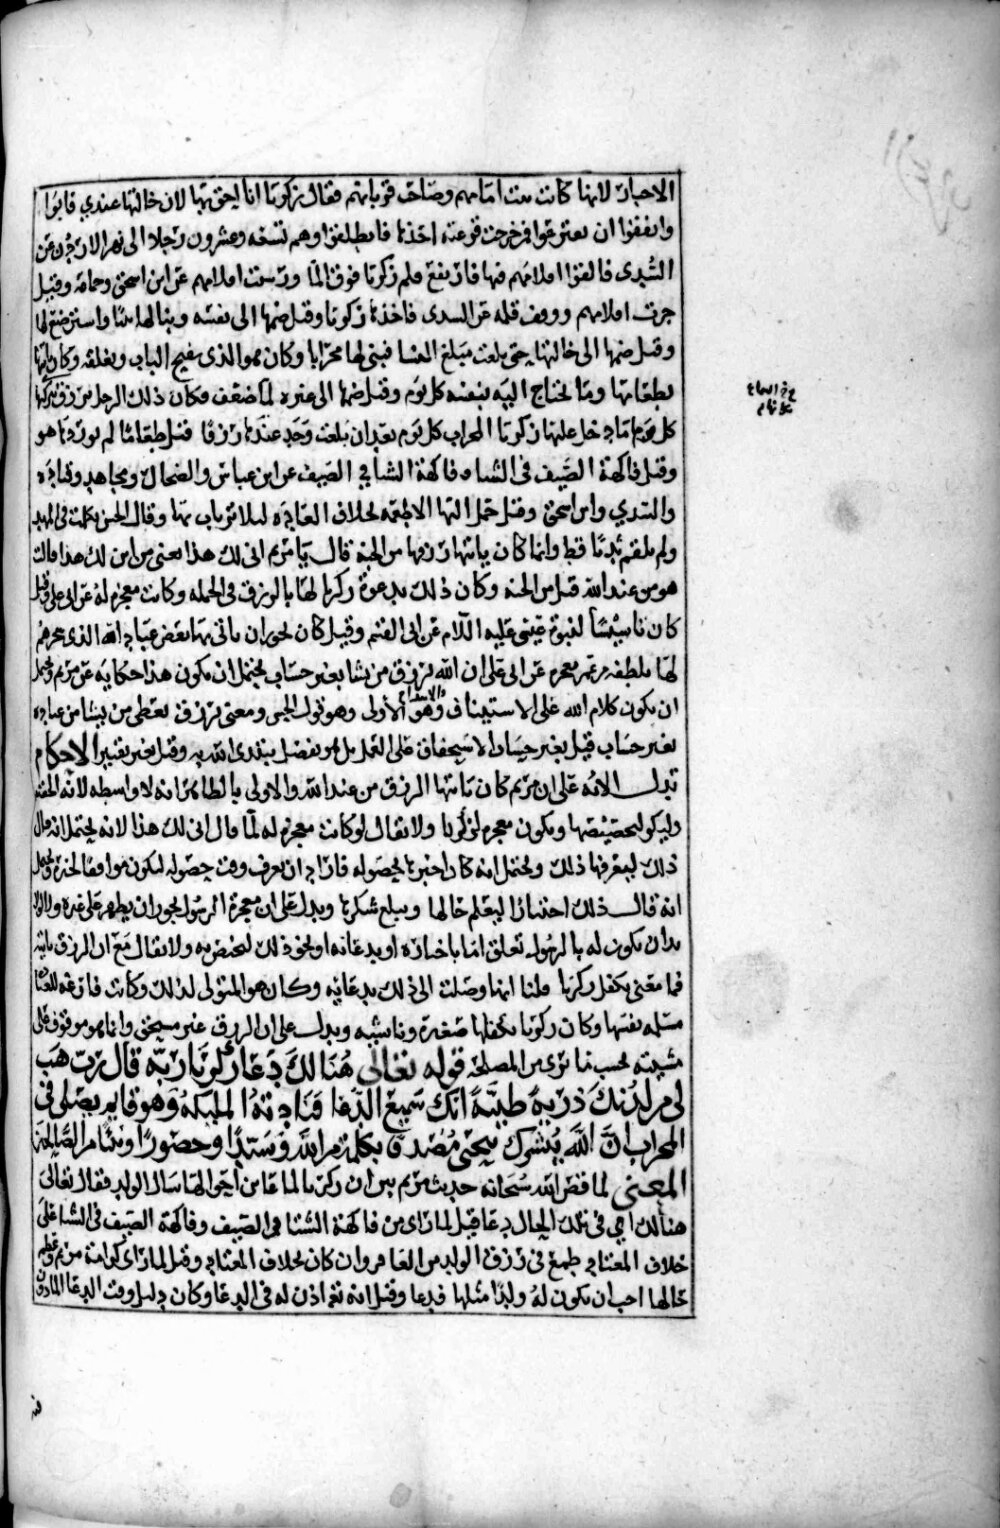 الاحبار لانها كانت بنت امامهم وصاحب قربانهم فقال زكريا انا احق بها لان خالتها عندي فابوا
واتفقوا ان يقترعوا فخرجت قرعته اخذها فانطلقوا وهم تسعه وعشرون رجلا الى نهر الاردن عن
السدي فالقوا اقلامهم فيها فارتفع قلم زكريا فوق الما ورسبت اقلامهم عن ابن اسحق وجماعه وقيل
جرت اقلامهم ووقف قلمه عن السدى فاخذها زكريا وقيل ضمها الى نفسه وبنا لها بيتا واسترضع لها
وقيل ضمها الى خالتها حتى بلغت مبلغ النسا فبنى لها محرابا وكان هو الذي يفتح الباب ويغلقه وكان ياتيها
بطعامها وما تحتاج اليه بنفسه كل يوم وقيل ضمها الى غيره لما ضعف فكان ذلك الرجل يرزق
كل يوم ما دخل عليها زكريا المحراب كل يوم بعد ان بلغت وجد عندها رزقا قيل طعاما لم هو
وقيل فاكهة الصيف فى الشتا وفاكهة الشتا في الصيف عن ابن عباس والضحاك ومجاهد وقتاده
والسدي وابن اسحق وقيل حمل اليها الاطعمه بخلاف العاده ليلا ترتاب بها وقال الحسن تكلمت في المهد
ولم تلقم ثديا قط وانما كان ياتيها رزقها من الجنه قال يا مريم انى لك هذا يعنى من اين لك هذا قالت
هو من عند الله قيل من الجنه وكان ذلك بدعوة زكريا لها بالرزق فى الجمله وكانت معجزه له عن ابى على وقيل
كان تاسيسا لنبوة عيسى عليه السلام عن ابى القسم وقيل كان يجوز ان ياتى بها بعض عباد الله الذى سخرهم
لها بلطفه عن ابى على ان الله يرزق من يشا بغير حساب يحتمل ان يكون هذا حكايه عن مريم ويحتمل
ان يكون كلام الله على الاستيناف والابتداء وهو الاولى وهو قول الحسن ومعنى يرزق يعطى من يشا من عباده
بغير حساب قيل بغير حساب الاستحقاق على العمل بل هو تفضل يبتدى الله به وقيل بغير تقتير الاحكام
تدل الايه على ان مريم كان ياتيها الرزق من عند الله والاولى بالظاهر انه لا واسطه لانه الحقيقه
وليكون تخصيصها ويكون معجزه لزكريا ولا يقال لو كانت معجزه له لما قال انى لك هذا لانه يحتمل انه قال
ذلك ليعرفها ذلك ويحتمل انه كان اخبرها بحصوله فاراد ان يعرف وقت حصوله ليكون موافقا لخبره ويحتمل
انه قال ذلك اختبارا ليعلم حالها ومبلغ شكرها ويدل على ان معجزة الرسول يجوز ان يظهر على غيره ولا
بد ان يكون له بالرسول تعلق اما باخباره او بدعائه او نحو ذلك لتختص به ولا يقال مع ان الرزق ياتيها
فما معنى تكفل زكريا قلنا انها وصلت الى ذلك بدعائه وكان هو المتولى لذلك وكانت فارغه للعباده
مسلمه نفسها وكان زكريا تكفلها صغيرة وناشيه ويدل على ان الرزق غير مستحق وانما هو موقوف على
مشيته بحسب ما يرى من المصلحه قوله تعالى هنالك دعا زكريا ربه قال رب هب
لى من لدنك ذرية طيبة انك سميع الدعا فنادته الملئكة وهو قايم يصلى فى
المحراب ان الله يبشرك بيحيى مصدقا بكلمة من الله وسيدا وحصورا ونبيا من الصالحين
المعنى لما قص الله سبحانه حديث مريم بين ان زكريا لما عاين احوالها سال الولد فقال تعالى
هنالك اي في تلك الحال دعا قيل لما راى من فاكهة الشتا فى الصيف وفاكهة الصيف فى الشتا على
خلاف المعتاد طمع فى رزق الولد من العاقر وان كان بخلاف المعتاد وقيل لما راى كرامة مريم وعظم
حالها احب ان يكون له ولدا مثلها فدعا وقيل انه تعالى اذن له فى الدعا وكان دليل وقت الدعا الماذون